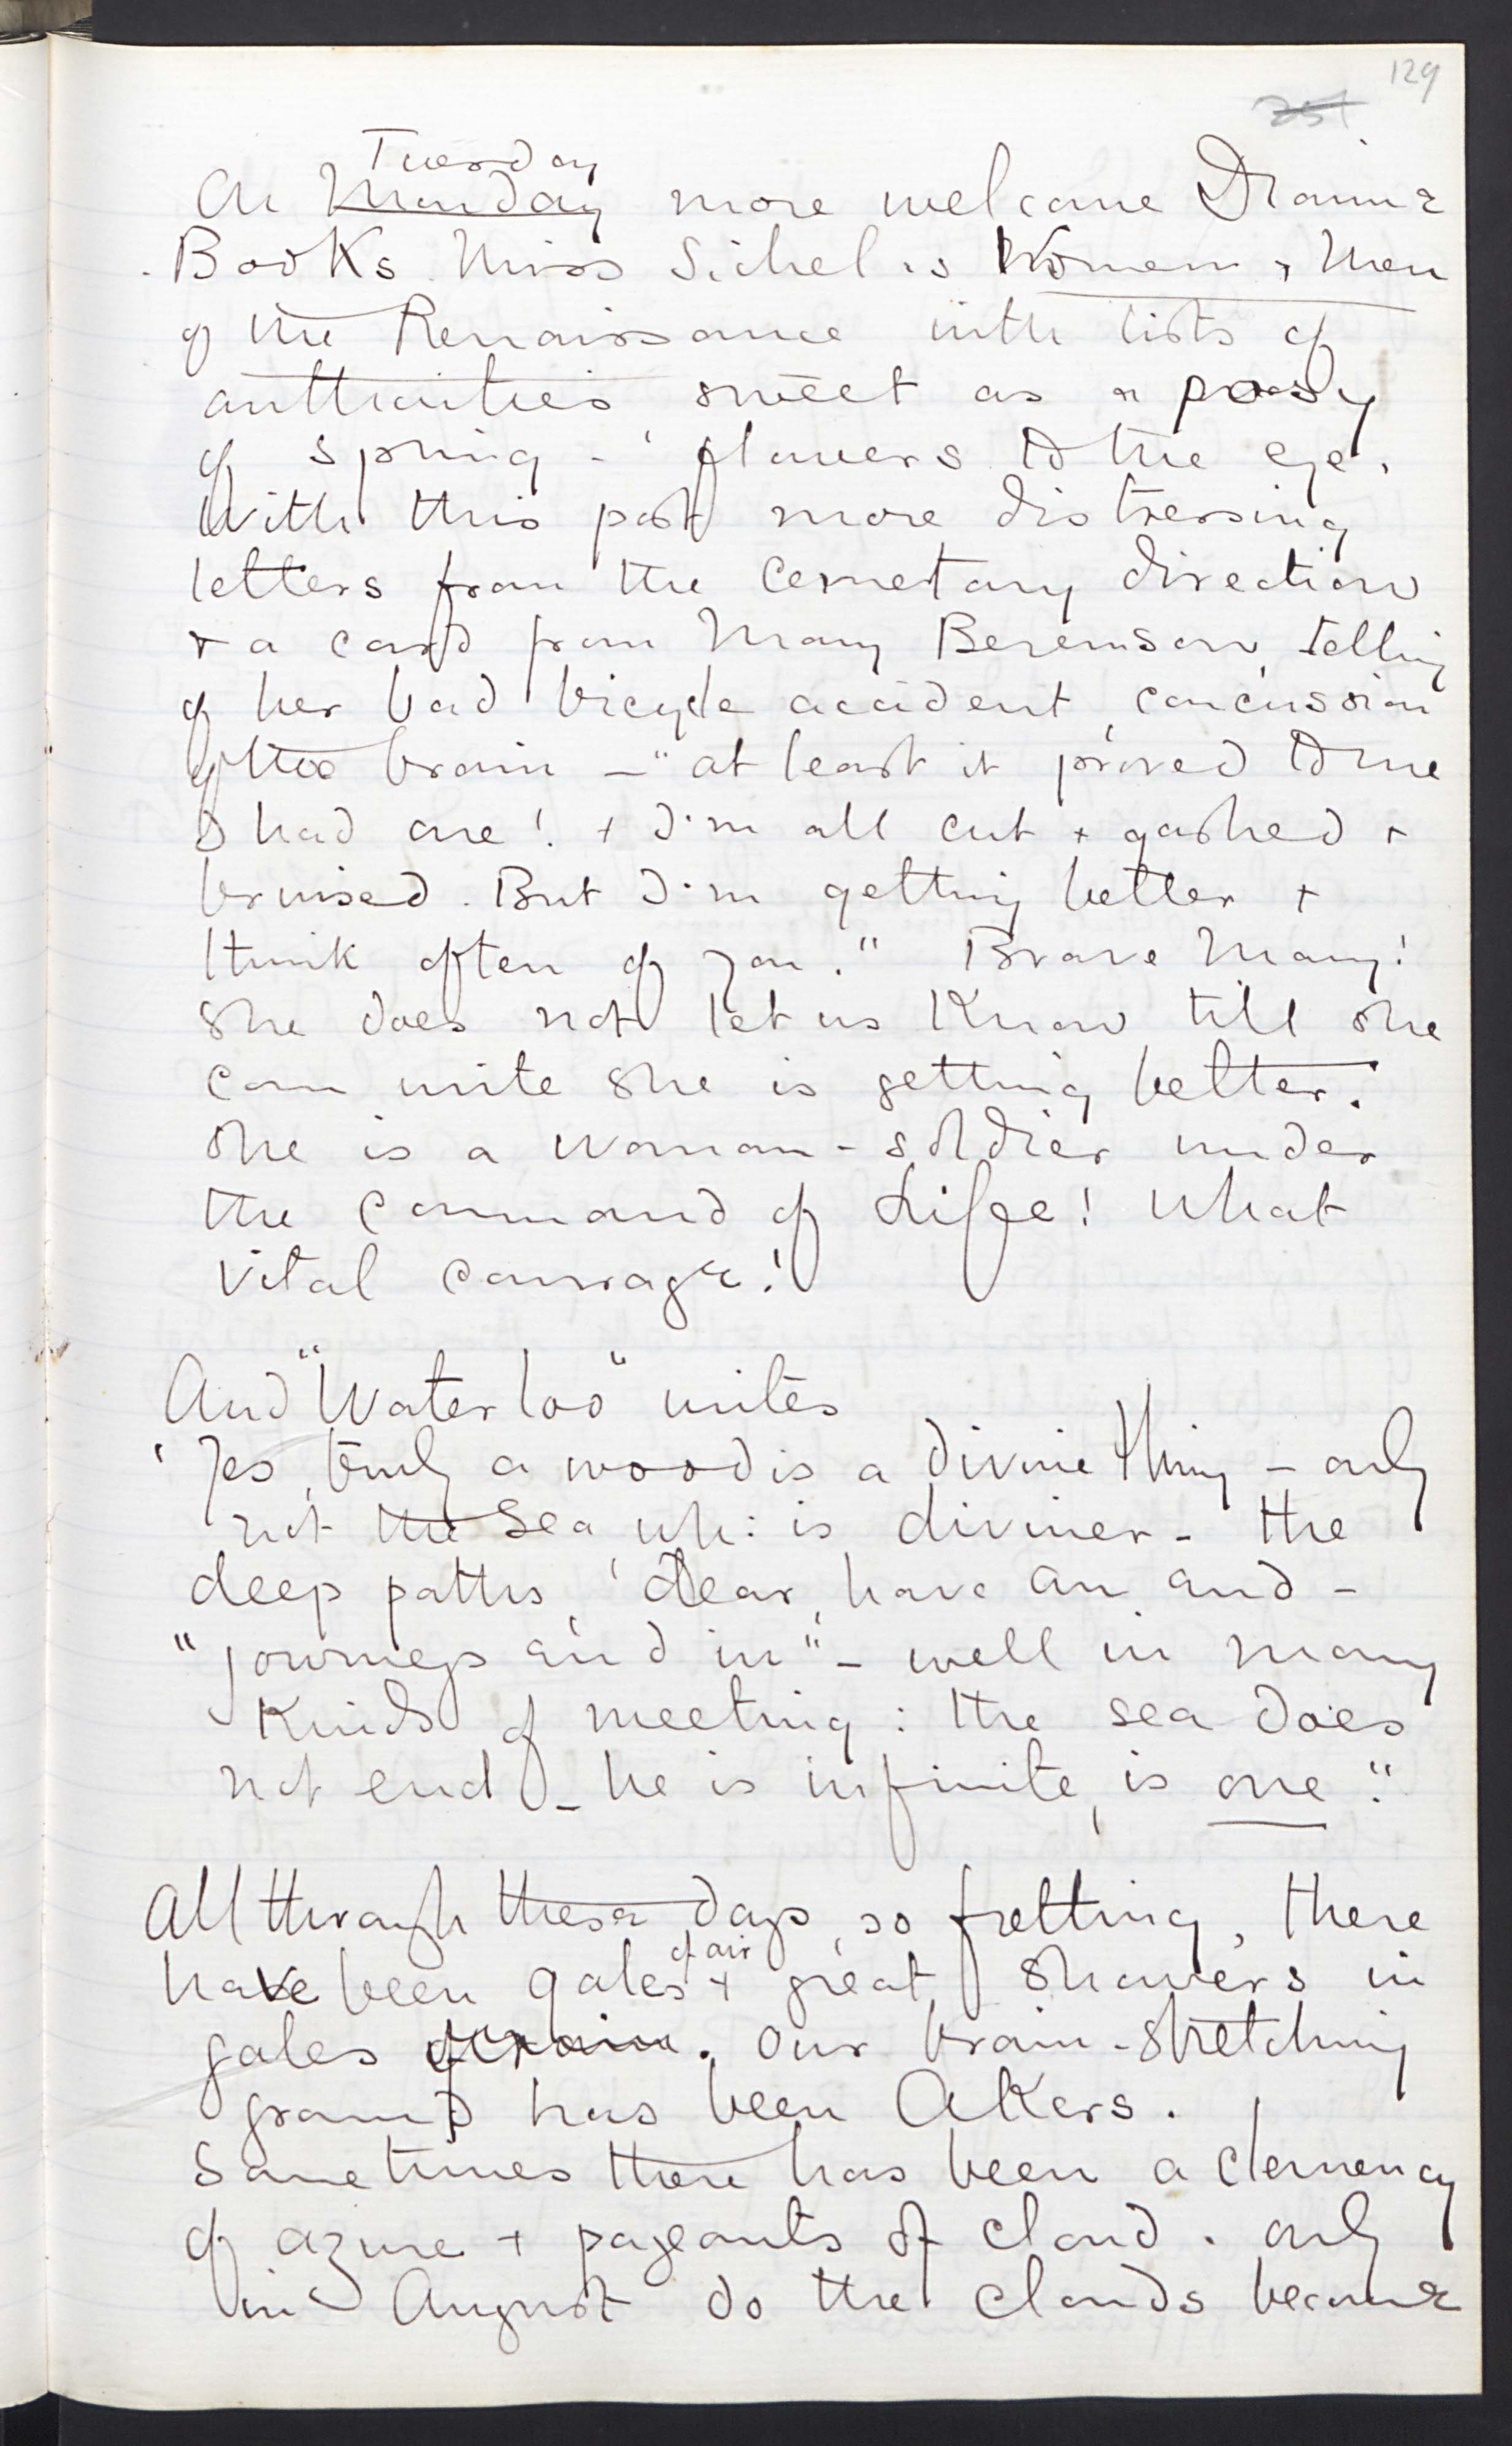 129
251
Tuesday
On Monday more welcome Drama
Books. Miss Sichel's Women & Men
of the Renaissance with lists of
authorities sweet as a posy
of spring-flowers to the eye.
With this post more distressing
letters from the Cemetary direction
& a card from Mary Berenson, telling
of her bad bicycle accident, concussion
of the brain — "at least it proved to me
I had one! & I'm all cut & gashed &
bruised. But I'm getting better &
think often of you." Brave Mary!
She does not let us know till she
can write she is getting better.
She is a woman-soldier under
the command of Life! What
vital courage!
And "Waterloo" writes
'Yes, truly a wood is a divine thing - only
not the Sea wh: is diviner - the
deep paths, dear, have an end -
"journeys end in" - well in many
kinds of meeting: the sea does
not end - he is infinite, is one."
All through these days, so fretting, there
have been gales of air & great showers in
gales of rain. Our brain-stretching
ground has been Akers.
Sometimes there has been a clemency
of azure & pageants of cloud. Only
in August do the clouds become